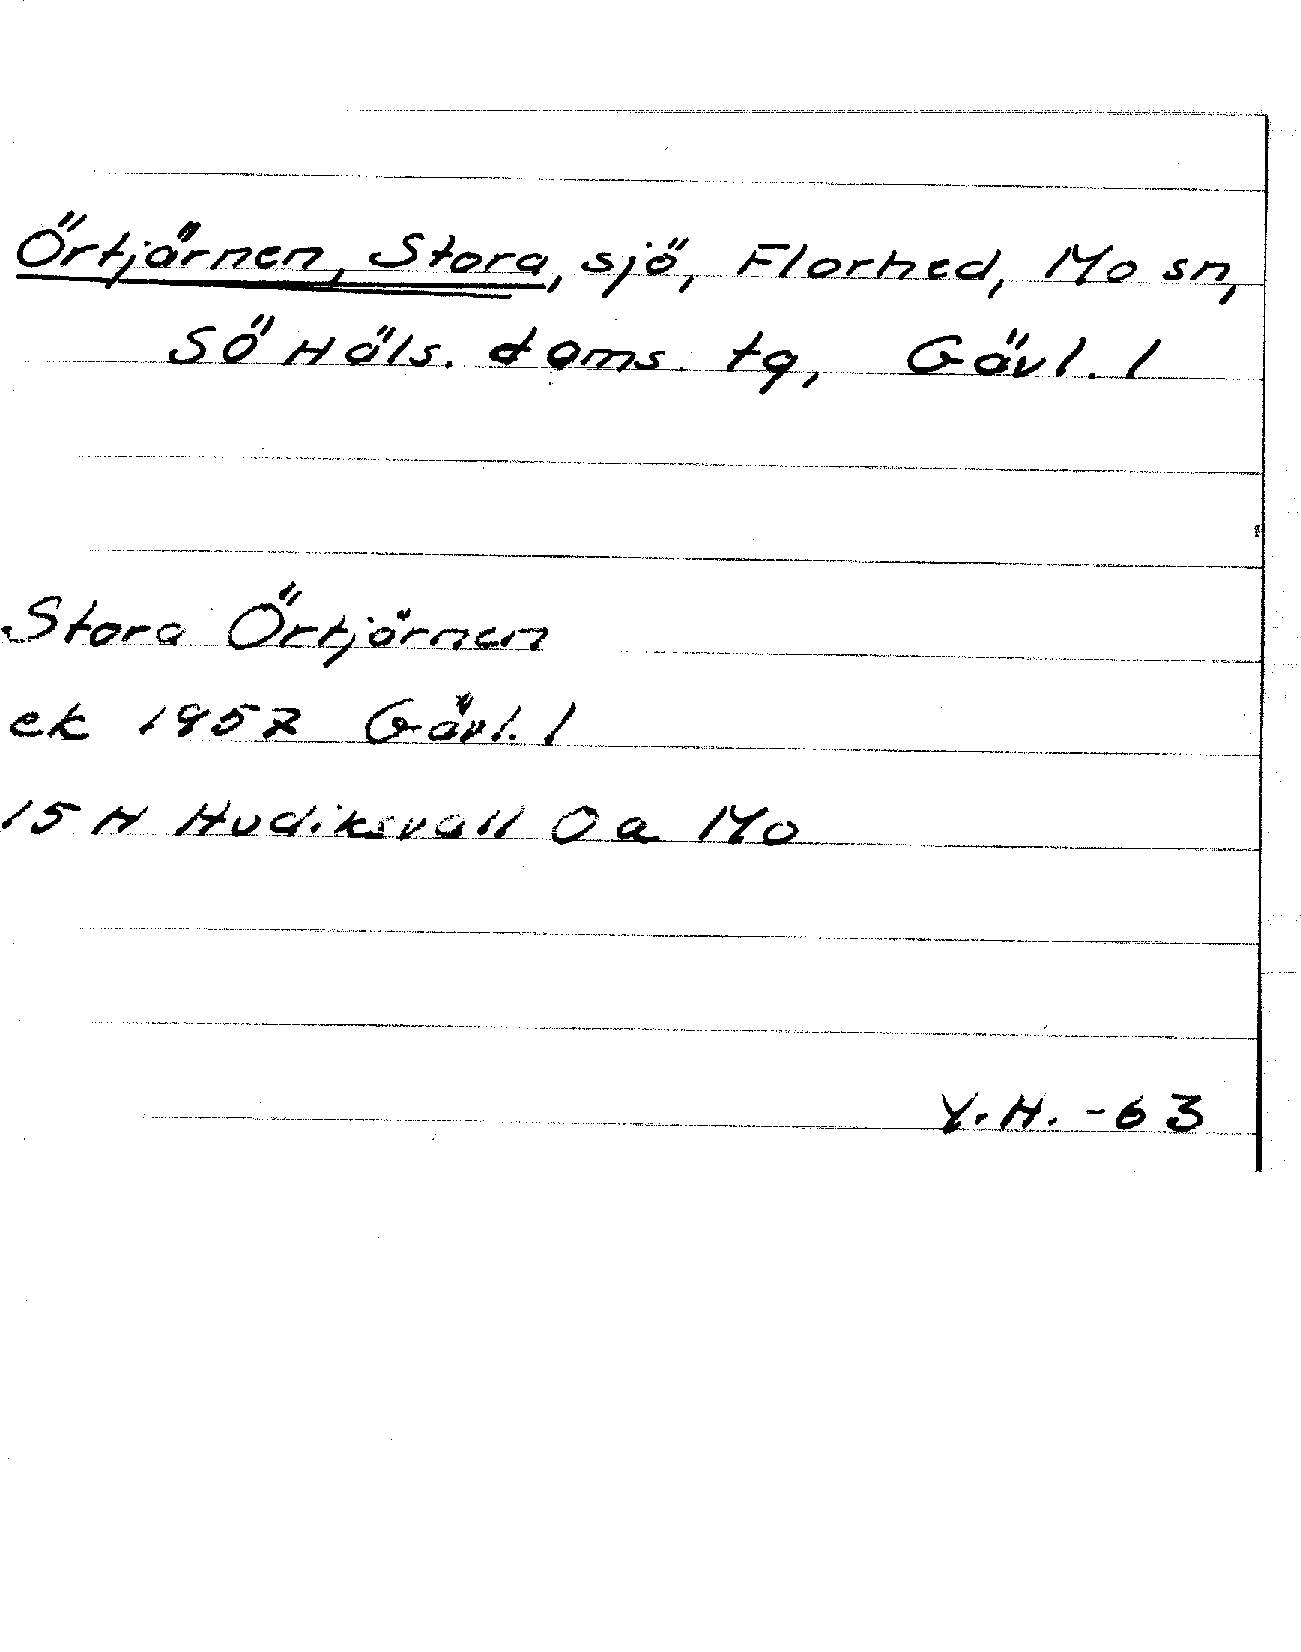 Örtjärnen, Stora, sjö, Florhed, Mo sn,
Sö Häls. doms. tg, Gävl. l
Stora Örtjärnen
ek 1957 Gävl. l
15 H Hudiksvall 0a Mo
Y.H. -63